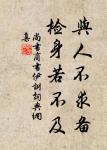 與人不求備
檢身若不及
尚書商書伊訓詞典網
集